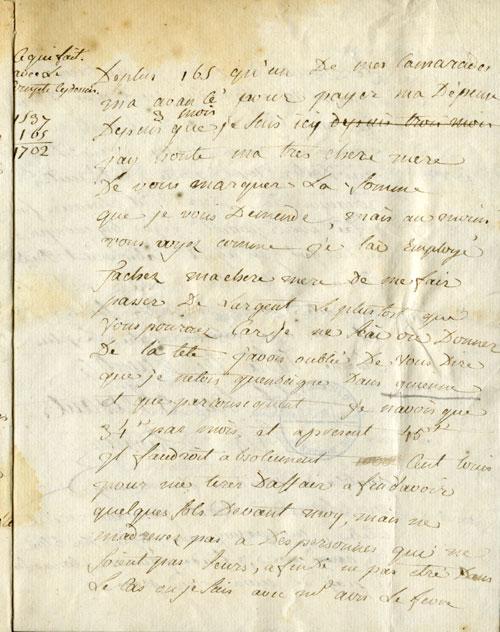 Ce qui fait.
avec le
compte cy dessus.
1537
165
1702
De plus 165 qu'un De mes Camarades
ma avancé pour payer ma Depense
Depuis 3 mois que je suis icy depuis trois mois
jais honte ma tres chere mere
De vous marquer La Somme
que je vous Demende, mais au moins
vous voyez comme je l'ai Employé
Fachez ma chere mere De me fair
passer De Largent Le plustost que
Vous pourez Car je ne sai ou Donner
De la tete javois oublié De vous Dire
que je netois quenseigne Dans
et que par consequent Je navois que
34tt par mois, et apresent 45tt
il faudroit absolument Cent Louis
pour me tirer Daffair afin davoir
quelques sols Devant moy, mais ne
madressez pas a Des personnes qui ne
soient pas seurs, afin de ne pas etre Dans
Le Cas ou je suis avec mr